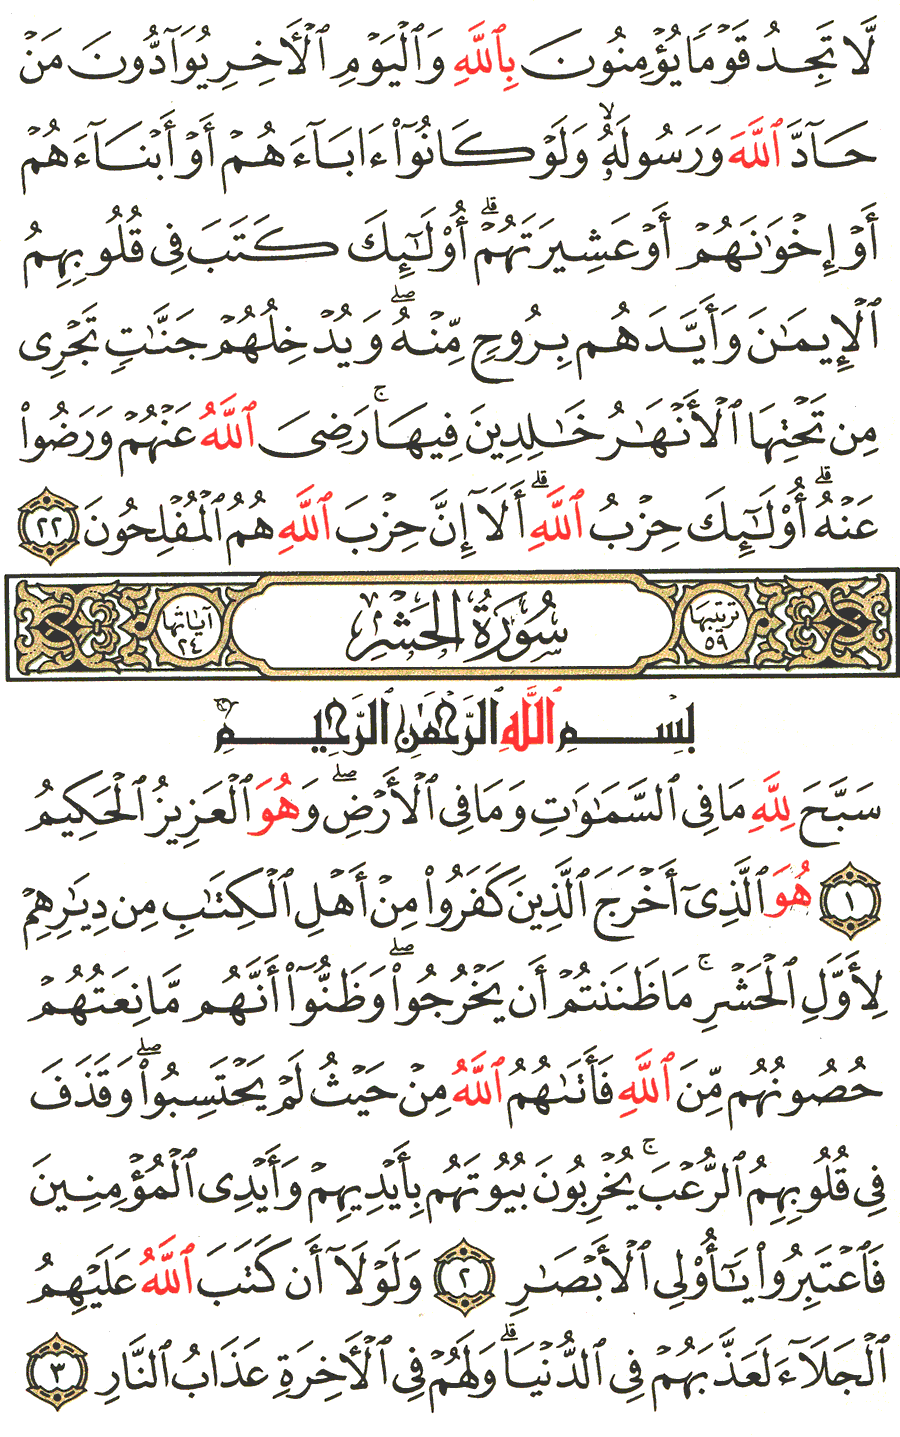 لَّا تَجِدُ قَوْمًا يُؤْمِنُونَ بِٱللَّهِ وَٱلْيَوْمِ ٱلْأَخِرِ يُوَآدُّونَ مَنْ
حَآدَّ ٱللَّهَ وَرَسُولَهُۥۙ وَلَوْ كَانُوٓا۟ ءَابَآءَهُمْ أَوْ أَبْنَآءَهُمْ
أَوْ إِخْوَٰنَهُمْ أَوْ عَشِيرَتَهُمْۗ أُو۟لَٰٓئِكَ كَتَبَ فِى قُلُوبِهِمُ
ٱلْإِيمَٰنَ وَأَيَّدَهُم بِرُوحٍ مِّنْهُۖ وَيُدْخِلُهُمْ جَنَّٰتٍ تَجْرِى
مِن تَحْتِهَا ٱلْأَنْهَٰرُ خَٰلِدِينَ فِيهَاۚ رَضِىَ ٱللَّهُ عَنْهُمْ وَرَضُوا۟
عَنْهُۗ أُو۟لَٰٓئِكَ حِزْبُ ٱللَّهِۗ أَلَآ إِنَّ حِزْبَ ٱللَّهِ هُمُ ٱلْمُفْلِحُونَ ٢٢
ترتيبها ٥٩ سُورَةُ الحَشْرِ آياتها ٢٤
بِسْمِ ٱللَّهِ ٱلرَّحْمَٰنِ ٱلرَّحِيمِ
سَبَّحَ لِلَّهِ مَا فِى ٱلسَّمَٰوَٰتِ وَمَا فِى ٱلْأَرْضِۖ وَهُوَ ٱلْعَزِيزُ ٱلْحَكِيمُ
١ هُوَ ٱلَّذِىٓ أَخْرَجَ ٱلَّذِينَ كَفَرُوا۟ مِنْ أَهْلِ ٱلْكِتَٰبِ مِن دِيَٰرِهِمْ
لِأَوَّلِ ٱلْحَشْرِۚ مَا ظَنَنتُمْ أَن يَخْرُجُوا۟ۖ وَظَنُّوٓا۟ أَنَّهُم مَّانِعَتُهُمْ
حُصُونُهُم مِّنَ ٱللَّهِ فَأَتَىٰهُمُ ٱللَّهُ مِنْ حَيْثُ لَمْ يَحْتَسِبُوا۟ۖ وَقَذَفَ
فِى قُلُوبِهِمُ ٱلرُّعْبَۚ يُخْرِبُونَ بُيُوتَهُم بِأَيْدِيهِمْ وَأَيْدِى ٱلْمُؤْمِنِينَ
فَٱعْتَبِرُوا۟ يَٰٓأُو۟لِى ٱلْأَبْصَٰرِ ٢ وَلَوْلَآ أَن كَتَبَ ٱللَّهُ عَلَيْهِمُ
ٱلْجَلَآءَ لَعَذَّبَهُمْ فِى ٱلدُّنْيَاۗ وَلَهُمْ فِى ٱلْأَخِرَةِ عَذَابُ ٱلنَّارِ ٣